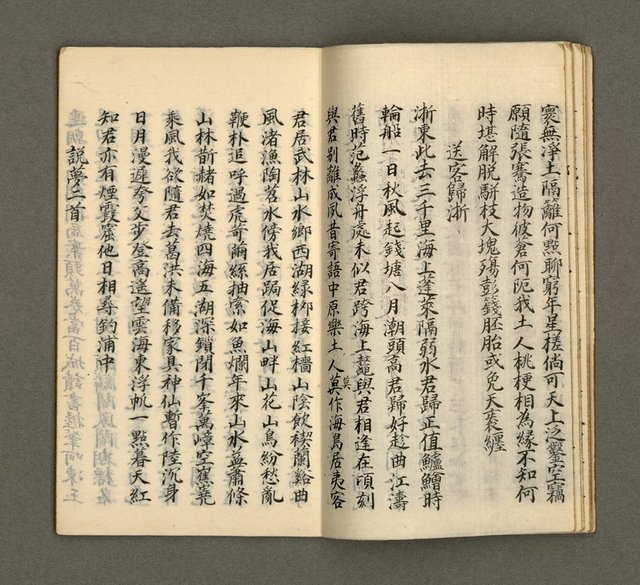 寰無淨土隔籬何點聊窮年星槎倘可天上泛鑿空竊
願隨張騫造物彼倉何阨我土人桃梗相為緣不知何
時堪解脫駢枝大塊殤彭籛胚胎或免天褒纏
送客歸浙
浙東此去三千里海上蓬萊隔弱水君歸正值鱸鱠時
輪船一日秋風起錢塘八月潮頭高君歸好趁曲江濤
舊時范蠡浮舟處未似君跨海上鼇與君相逢在頃刻
與君別離成夙昔寄語中原樂土人莫作海島居夷客
君居武林山水鄉西湖綠柳接紅檣山陰飲禊蘭谿曲
風渚漁陶苕水傍我居跼促海山畔山花山鳥紛愁亂
鞭朴追呼過虎苛繭絲抽瘵如魚爛年來山水益蕭條
山林斮赭如焚燒四海五湖深鎖閉千峯萬嶂空嶣嶢
乘風我欲隨君去葛洪未備移家具神仙暫作陸沉身
日月漫遲夸父步登高遙望雲海東浮帆一點暮天紅
知君亦有煙霞窟他日相尋釣浦中
說夢二首